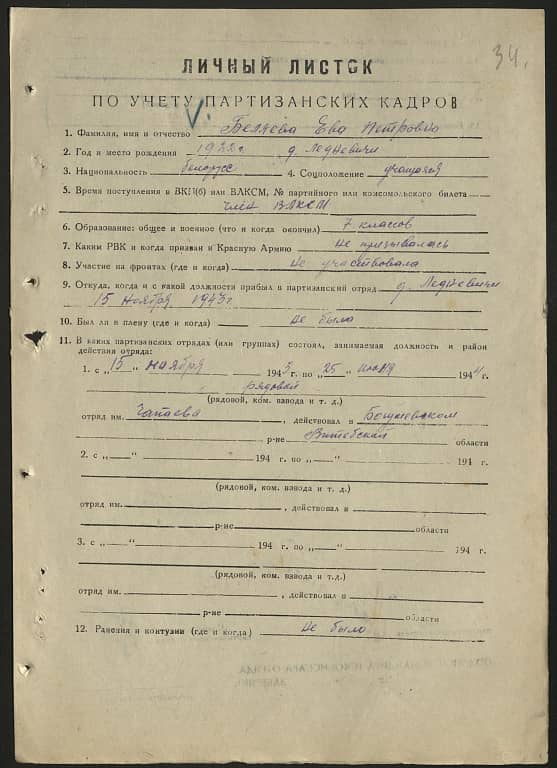 34.
ЛИЧНЫЙ ЛИСТОК
ПО УЧЕТУ ПАРТИЗАНСКИХ КАДРОВ
1. Фамилия, имя и отчество Беляева Ева Петровна
2. Год и место рождения 1922г. д. Ледневичи
3. Национальность белорусс 4. Соцположение учащаяся
5. Время поступления в ВКП(б) или ВЛКСМ, № партийного или комсомольского билета
член ВЛКСМ
6. Образование: общее и военное (что и когда окончил) 7 классов
7. Каким РВК и когда призван в Красную Армию Не призывалась
8. Участие на фронтах (где и когда) Не участвовала
9. Откуда, когда и с какой должности прибыл в партизанский отряд д. Ледневичи
15 Ноября 1943г
10. Был ли в плену (где и когда) Не была
11. В каких партизанских отрядах (или группах) состоял, занимаемая должность и район
действия отряда:
1. с „15“ ноября 1943 г. по „25“ июня 1944 г.
рядовой
(рядовой, ком. взвода и т. д.)
отряд им. Чапаева, действовал в Богушевском
р-не Витебской области
2. с „—“ 194 г. по „—“ 194 г.
(рядовой, ком. взвода и т. д.)
отряд им. , действовал в
р-не области
3. с „—“ 194 г. по „—“ 194 г.
(рядовой, ком. взвода и т. д.)
отряд им. , действовал в
р-не области
12. Ранения и контузии (где и когда) Не было